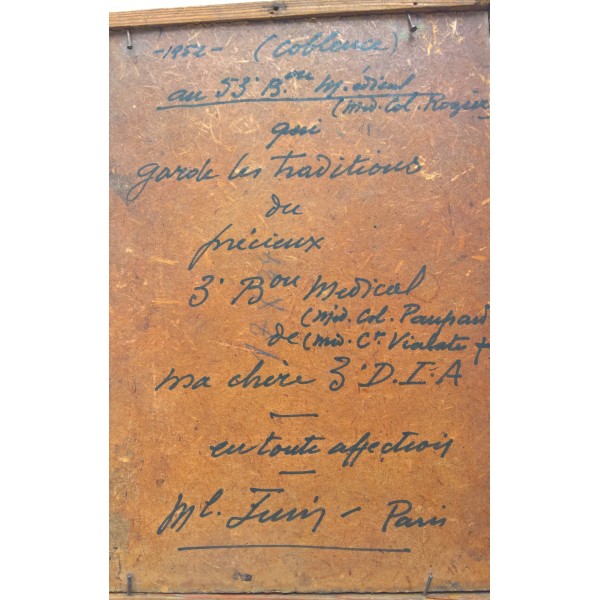 -1952- (Coblence)
au 53e Bon Médical
(méd. Col. Rozier
qui
garde les traditions
du
précieux
3e Bon Medical
(méd. Col.
de (méd. Ct. Vialate +
ma chère 3e D.I.A
en toute affection
Ml. Juin - Paris